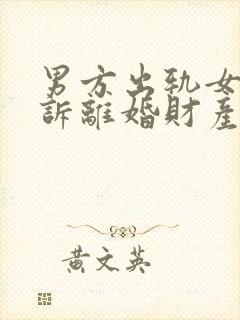 男方出軌女
訴離婚財產
黃文英